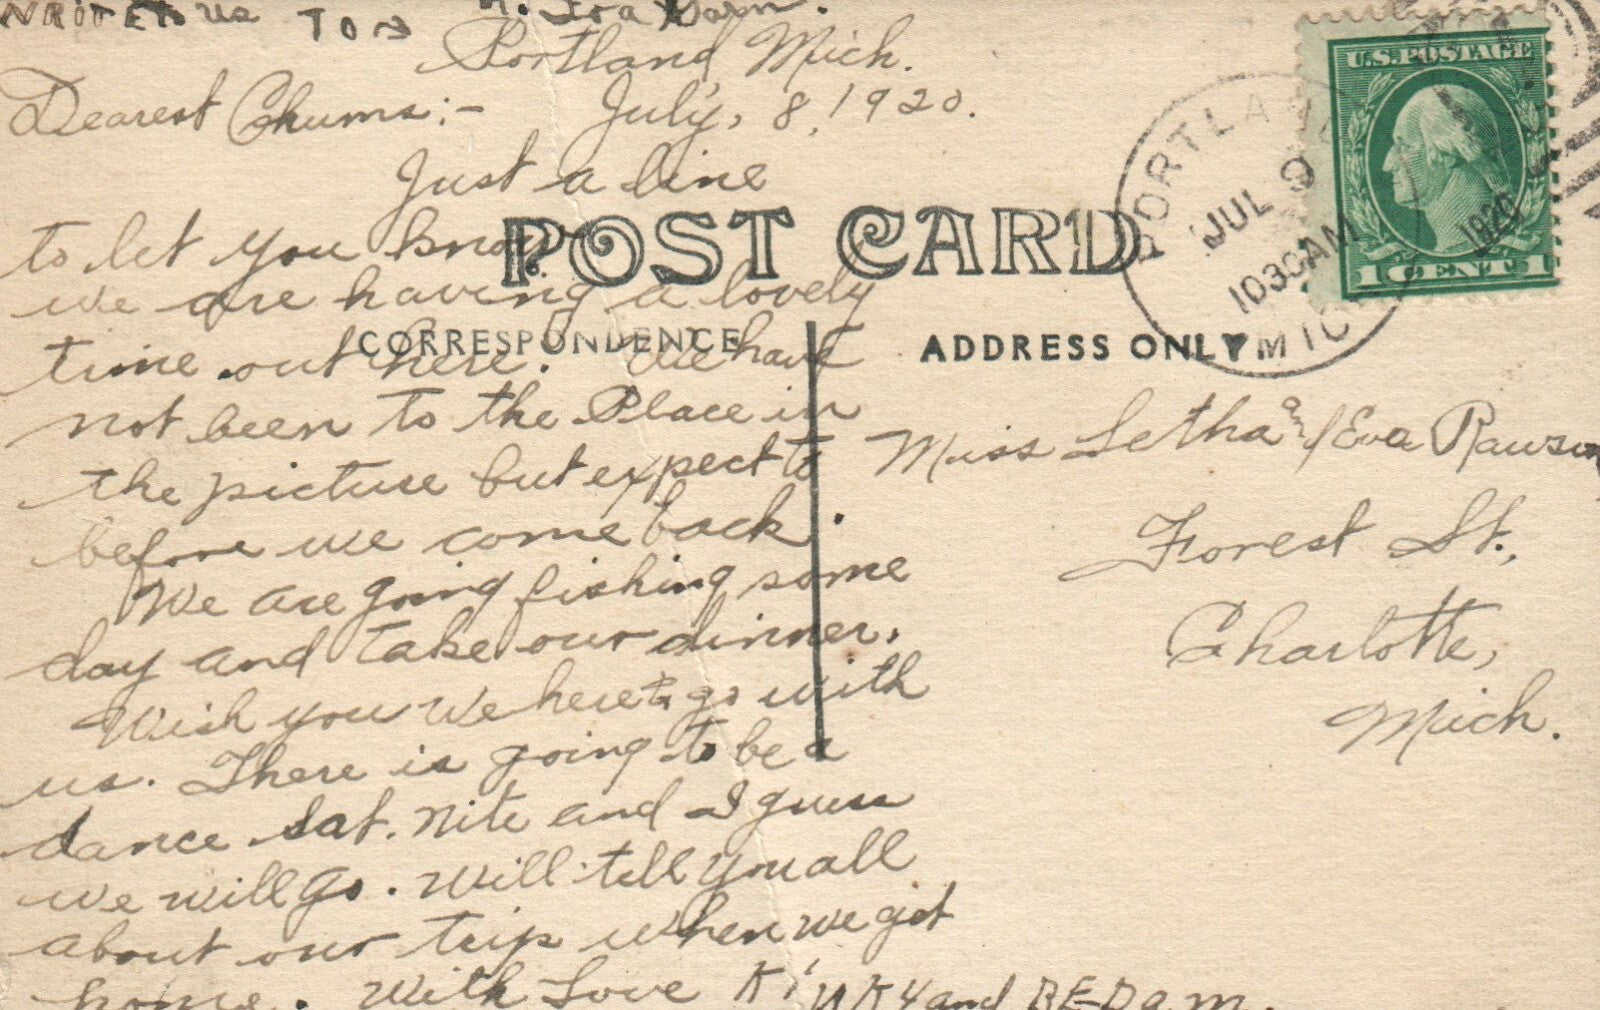 us to
Portland, Mich.
July, 8, 1920.
Dearest Chums:-
Just a line
to let you know
we are having a lovely
time out here. We have
not been to the Place in
the picture but expect to
before we come back.
We are going fishing some
day and take our dinner.
Wish you we here to go with
us. There is going to be a
dance Sat. nite and I guess
we will go. Will tell you all
about our trip when we get
home. With Love Kinky and
POST CARD
CORRESPONDENCE
ADDRESS ONLY
U.S. POSTAGE
1 CENT 1
PORTLAND
JUL 9
1030AM
1920
MICH
Miss Letha and Eva Rawson
Forest St.,
Charlotte,
Mich.